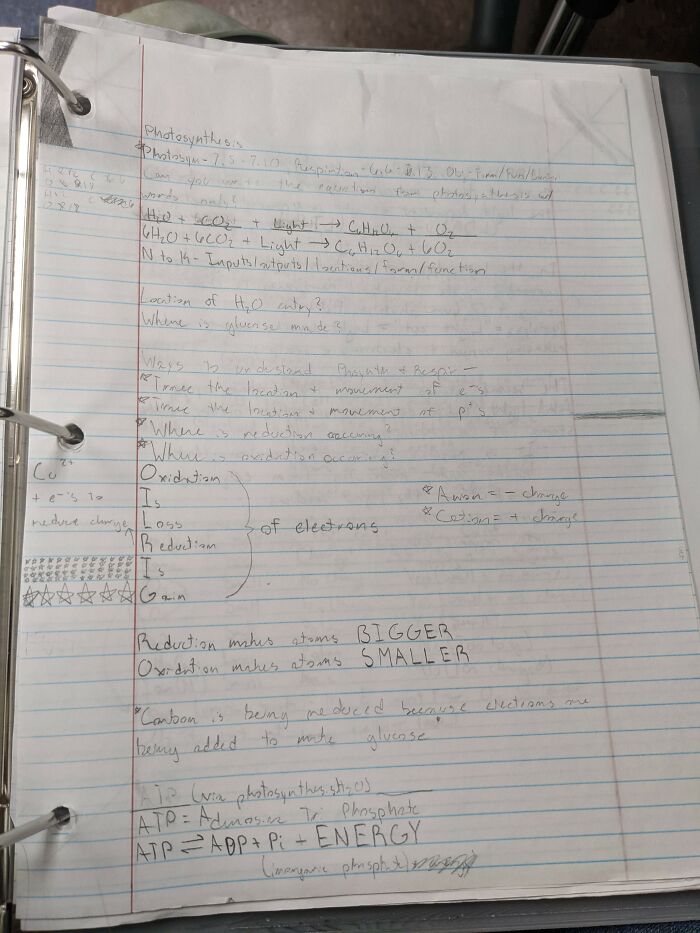 Photosynthesis
*Photosyn - 7.5 - 7.10 Respiration - 6.6 - 6.13
Can you write the equation from photosynthesis w/
words only?
H2O + CO2 + Light → C6H12O6 + O2
6H2O + 6CO2 + Light → C6H12O6 + 6O2
N to K - Inputs/outputs/locations/form/function
Location of H2O entry?
Where is glucose made?
Ways to understand Phosynth + Respir -
*Trace the location + movement of e-s
*Trace the location + movement of p+s
*Where is reduction occuring?
*Where is oxidation occuring?
Oxidation
Is
Loss
Reduction
Is
Gain
of electrons
Cu2+
+ e-'s to
reduce charge
*Anion = - charge
*Cation = + charge
Reduction makes atoms BIGGER
Oxidation makes atoms SMALLER
*Carbon is being reduced because electrons are
being added to make glucose
ATP (via photosynthesis H2O)
ATP = Adenosine Tri Phosphate
ATP ⇌ ADP + Pi + ENERGY
(inorganic phosphate)